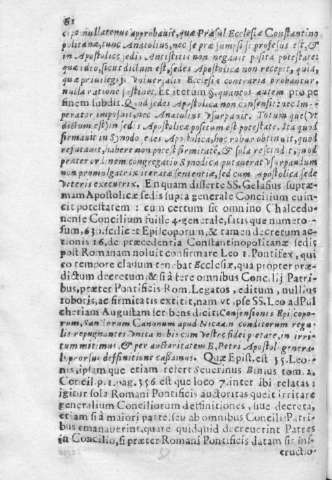 62
cipi nullatenus approbauit, quæ Præsul Ecclesiæ Constantino
politanæ, tunc Anatolius, nec se præsumpsisse professus est, &
in Apostolicæ sedis Antistitis non negauit posita potestate:
quæ ideo, sicut dictum est, sedes Apostolica non recepit, quia,
quæ priuilegijs vniuersalis Ecclesiæ contraria probantur,
nulla ratione sustinet. Et iterum §. quantos autem prope
finem subdit. Quod sedes Apostolica non consensit, nec Im-
perator imposuit, nec Anatolius vsurpauit. Totum que (vt
dictum est) in sedis Apostolicæ positum est potestate. Ita quod
firmauit in Synodo sedes Apostolica, hoc robur obtinuit, quod
refutauit, habere non potest firmitatem, & sola rescindit, quod
præter ordinem congregatio Synodica putauerat vsurpandum
non promulgatrix iteratæ sententiæ, sed cum Apostolica sede
veteris executrix. En quam disserte SS. Gelasius supre-
mam Apostolicæ sedis supra generale Concilium euin-
cit potestatem: cum certum sit omnino Chalcedo-
nense Concilium fuisse 4. generale, satisque numero-
sum, 630. scilicet Episcoporum, & tamen decretum ac-
tionis 16. de præcedentia Constantinopolitanæ sedis
post Romanam noluit confirmare Leo 1. Pontifex, qui
eo tempore clauum tenebat Ecclesiæ, qua propter præ-
dictum decretum
bus, præter Pontificis Rom. Legatos, editum, nullius
roboris, ac firmitatis extitit, nam vt ipse SS. Leo ad Pul
cheriam Augustam scribens dicit: Consensiones Episcopo-
rum, Sanctorum Canonum apud Nicæam conditorum regu-
lis repugnantes vnita nobiscum vestræ fidei pietate, in irri-
tum mittimus, & per auctoritatem B. Petri Apostoli genera-
li prorsus definitione cassamus. Quæ Epist. est 55. Leo-
nis, ipsamque etiam refert Seuerinus Binius tom. 2.
Concil. p. 1. pag. 356 est que loco 7. inter ibi relatas:
igitur sola Romani Pontificis auctoritas queit irritare
generalium Conciliorum definitiones, siue decreta,
etiam si à maiori parte, seu ab omnibus Concilij Patri-
bus emanauerint, quare quidquid decreuerint Patres
in Concilio, si præter Romani Pontificis datam sit in-
structio-